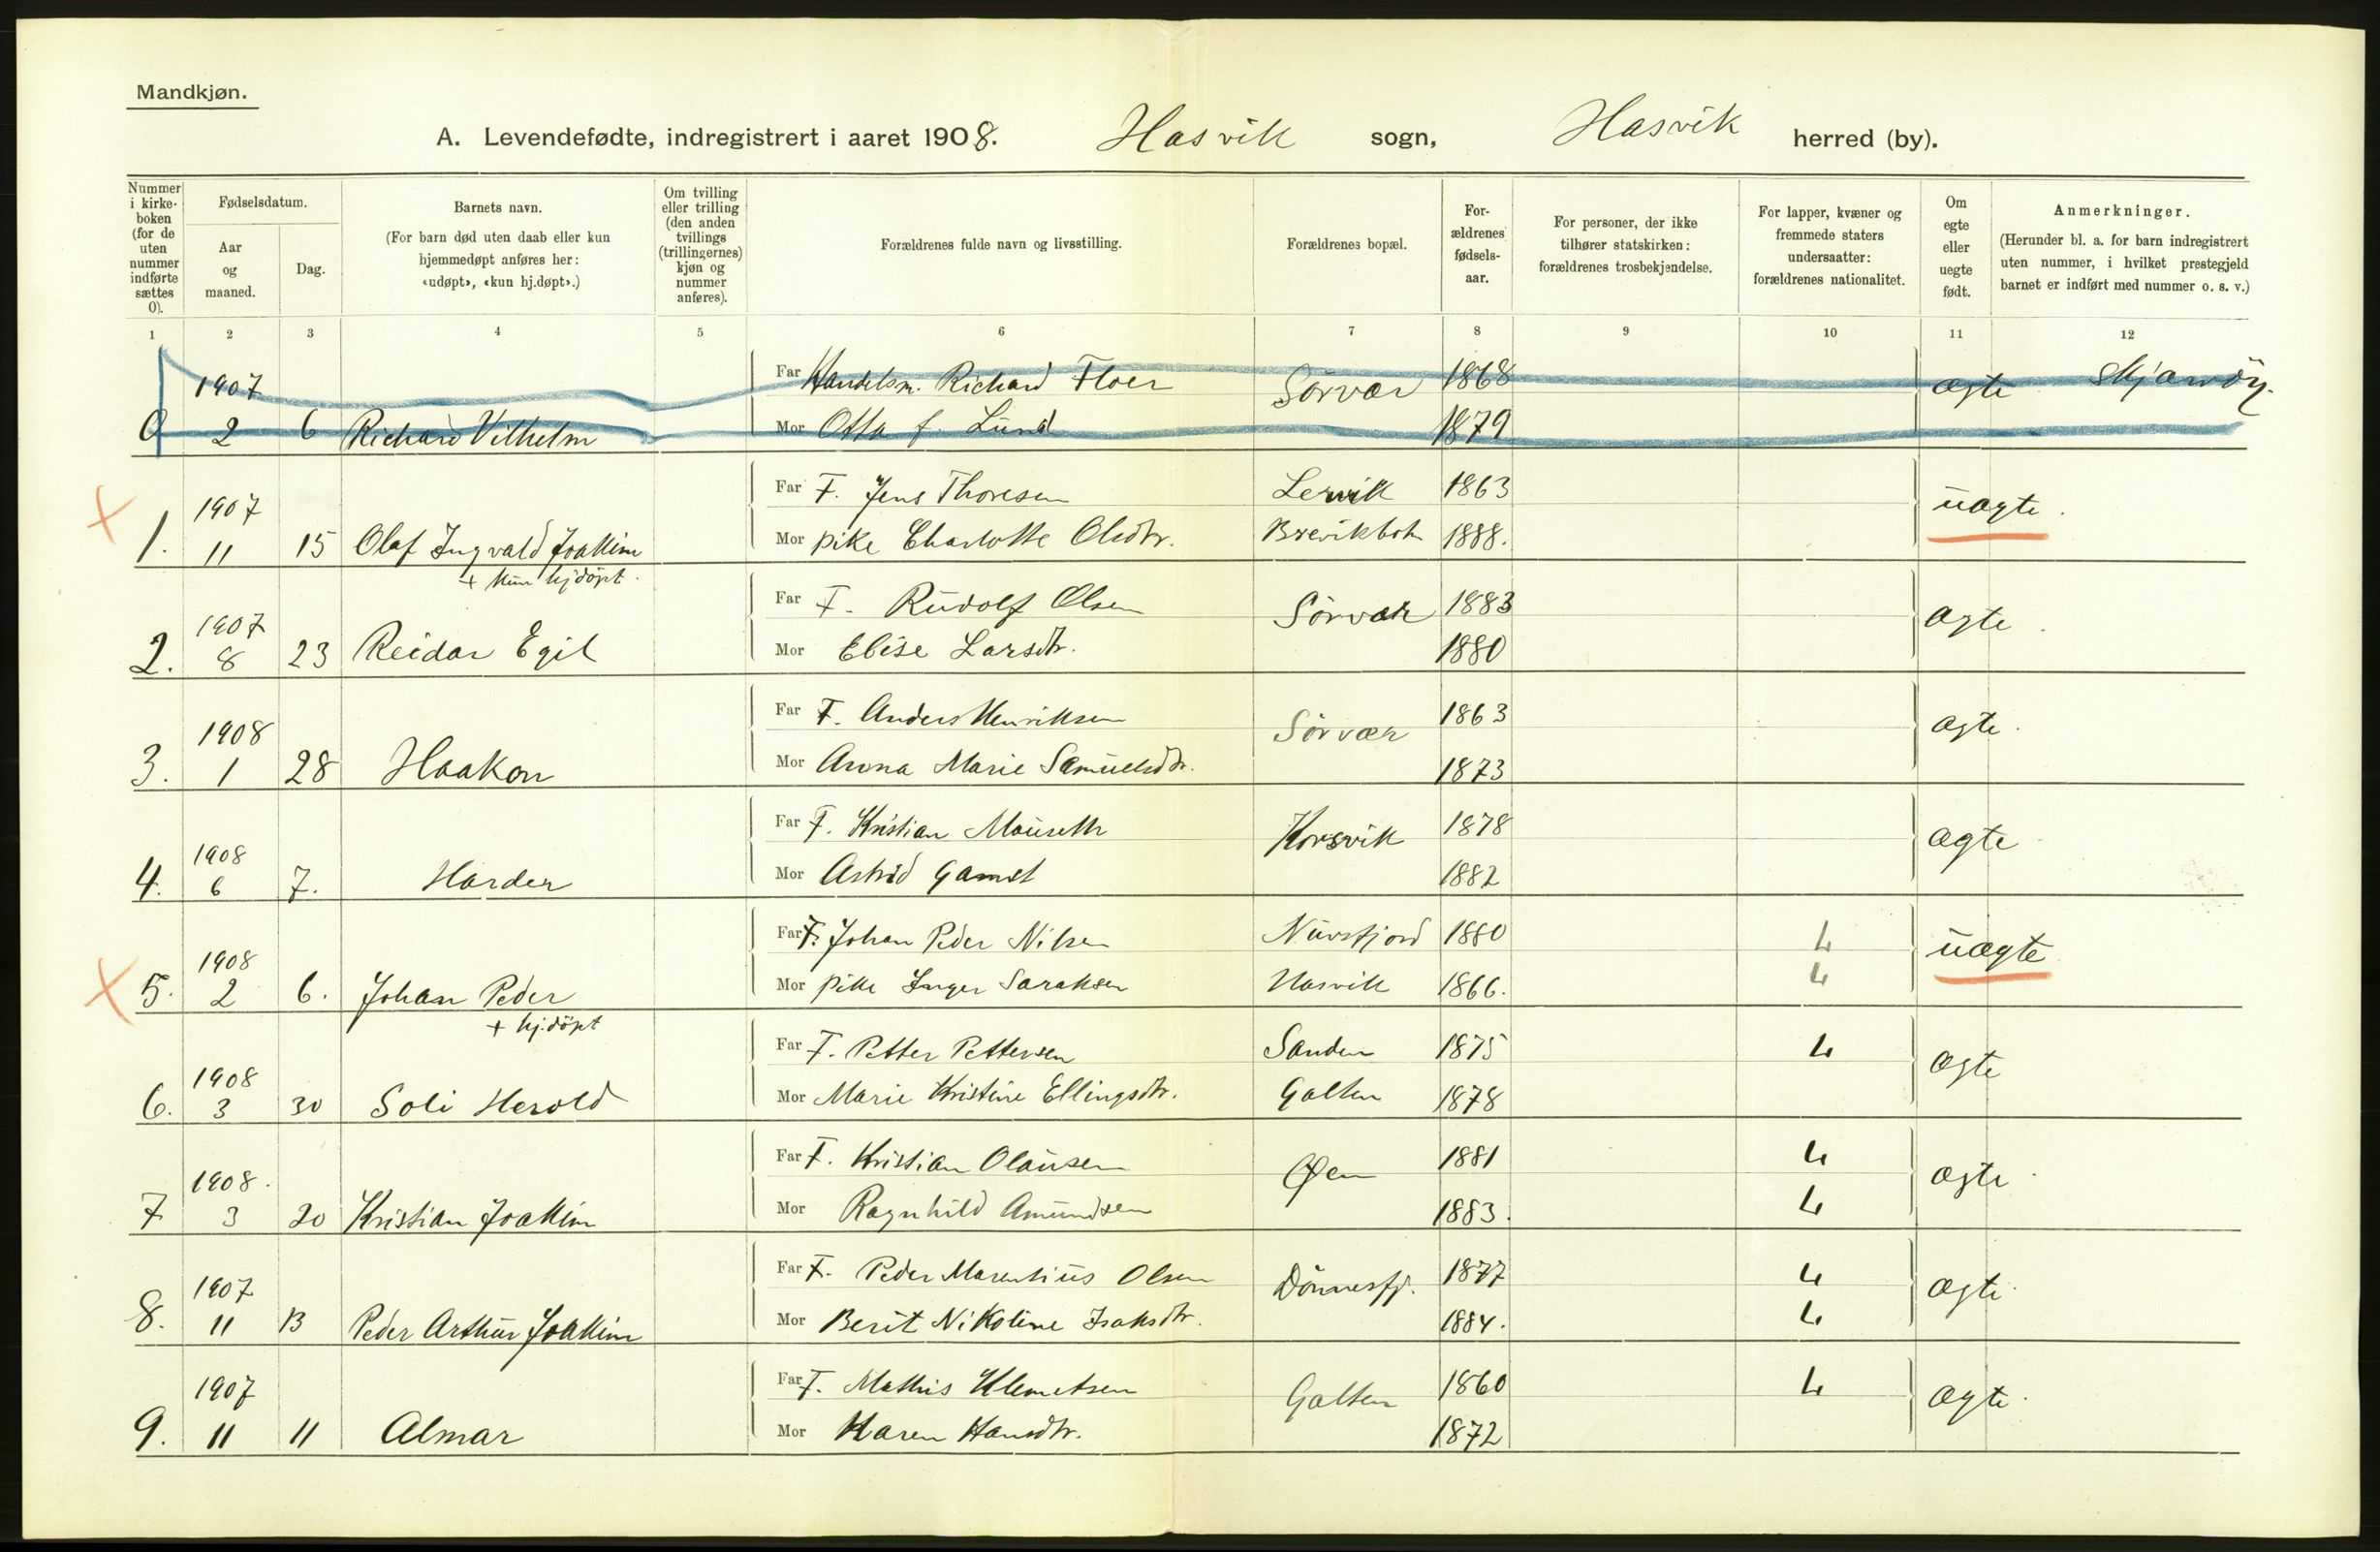 Mandkjøn.
A. Levendefødte, indregistrert i aaret 1908. Hasvik sogn, Hasvik herred (by).
Nummer i kirke-boken (for de uten nummer indførte sættes 0).
Fødselsdatum.
Aar og maaned.
Dag.
Barnets navn.
(For barn død uten daab eller kun hjemmedøpt anføres her: «udøpt», «kun hj.døpt».)
Om tvilling eller trilling (den anden tvillings (trillingernes) kjøn og nummer anføres).
Forældrenes fulde navn og livsstilling.
Forældrenes bopæl.
For-ældrenes fødsels-aar.
For personer, der ikke tilhører statskirken: forældrenes trosbekjendelse.
For lapper, kvæner og fremmede staters undersaatter: forældrenes nationalitet.
Om egte eller uegte født.
Anmerkninger.
(Herunder bl. a. for barn indregistrert uten nummer, i hvilket prestegjeld barnet er indført med nummer o. s. v.)
1 2 3 4 5 6 7 8 9 10 11 12
1907 Far Handelsm. Richard Floer Sörvær 1868 ægte
0 2 6 Richard Vilhelm Mor Otta f. Lund 1879
1907 Far F. Jens Thoresen Lervik 1863 uægte.
1. 11 15 Olaf Ingvald Joakim Mor pike Charlotte Olsdtr. Brevikbotn 1888.
+ kun hjdöpt.
1907 Far F. Rudolf Olsen Sörvær 1883 ægte.
2. 8 23 Reidar Egil Mor Elise Larsdtr. 1880
1908 Far F. Anders Henriksen Sörvær 1863 ægte.
3. 1 28 Haakon Mor Anna Marie Samuelsdtr. 1873
1908 Far F. Kristian Mauseth Korsvik 1878 ægte
4. 6 7. Harder Mor Astrid Gamst 1882
1908 Far F. Johan Peder Nilsen Nuvsfjord 1880 L uægte
5. 2 6. Johan Peder Mor pike Inger Saraksen Hasvik 1866. L
+ hj.döpt
1908 Far F. Petter Pettersen Sanden 1875 L ægte
6. 3 30 Soli Herold Mor Marie Kristine Ellingsdtr. Galten 1878
1908. Far F. Kristian Olausen Øen 1881 L ægte
7 3 20 Kristian Joakim Mor Ragnhild Amundsen 1883. L
1907 Far F. Peder Marentius Olsen Dönnesfj. 1877 L ægte
8. 11 13 Peder Arthur Joakim Mor Berit Nikoline Isaksdtr. 1884. L
1907 Far F. Mathis Klemetsen Galten 1860 L ægte.
9. 11 11 Almar Mor Karen Hansdtr. 1872